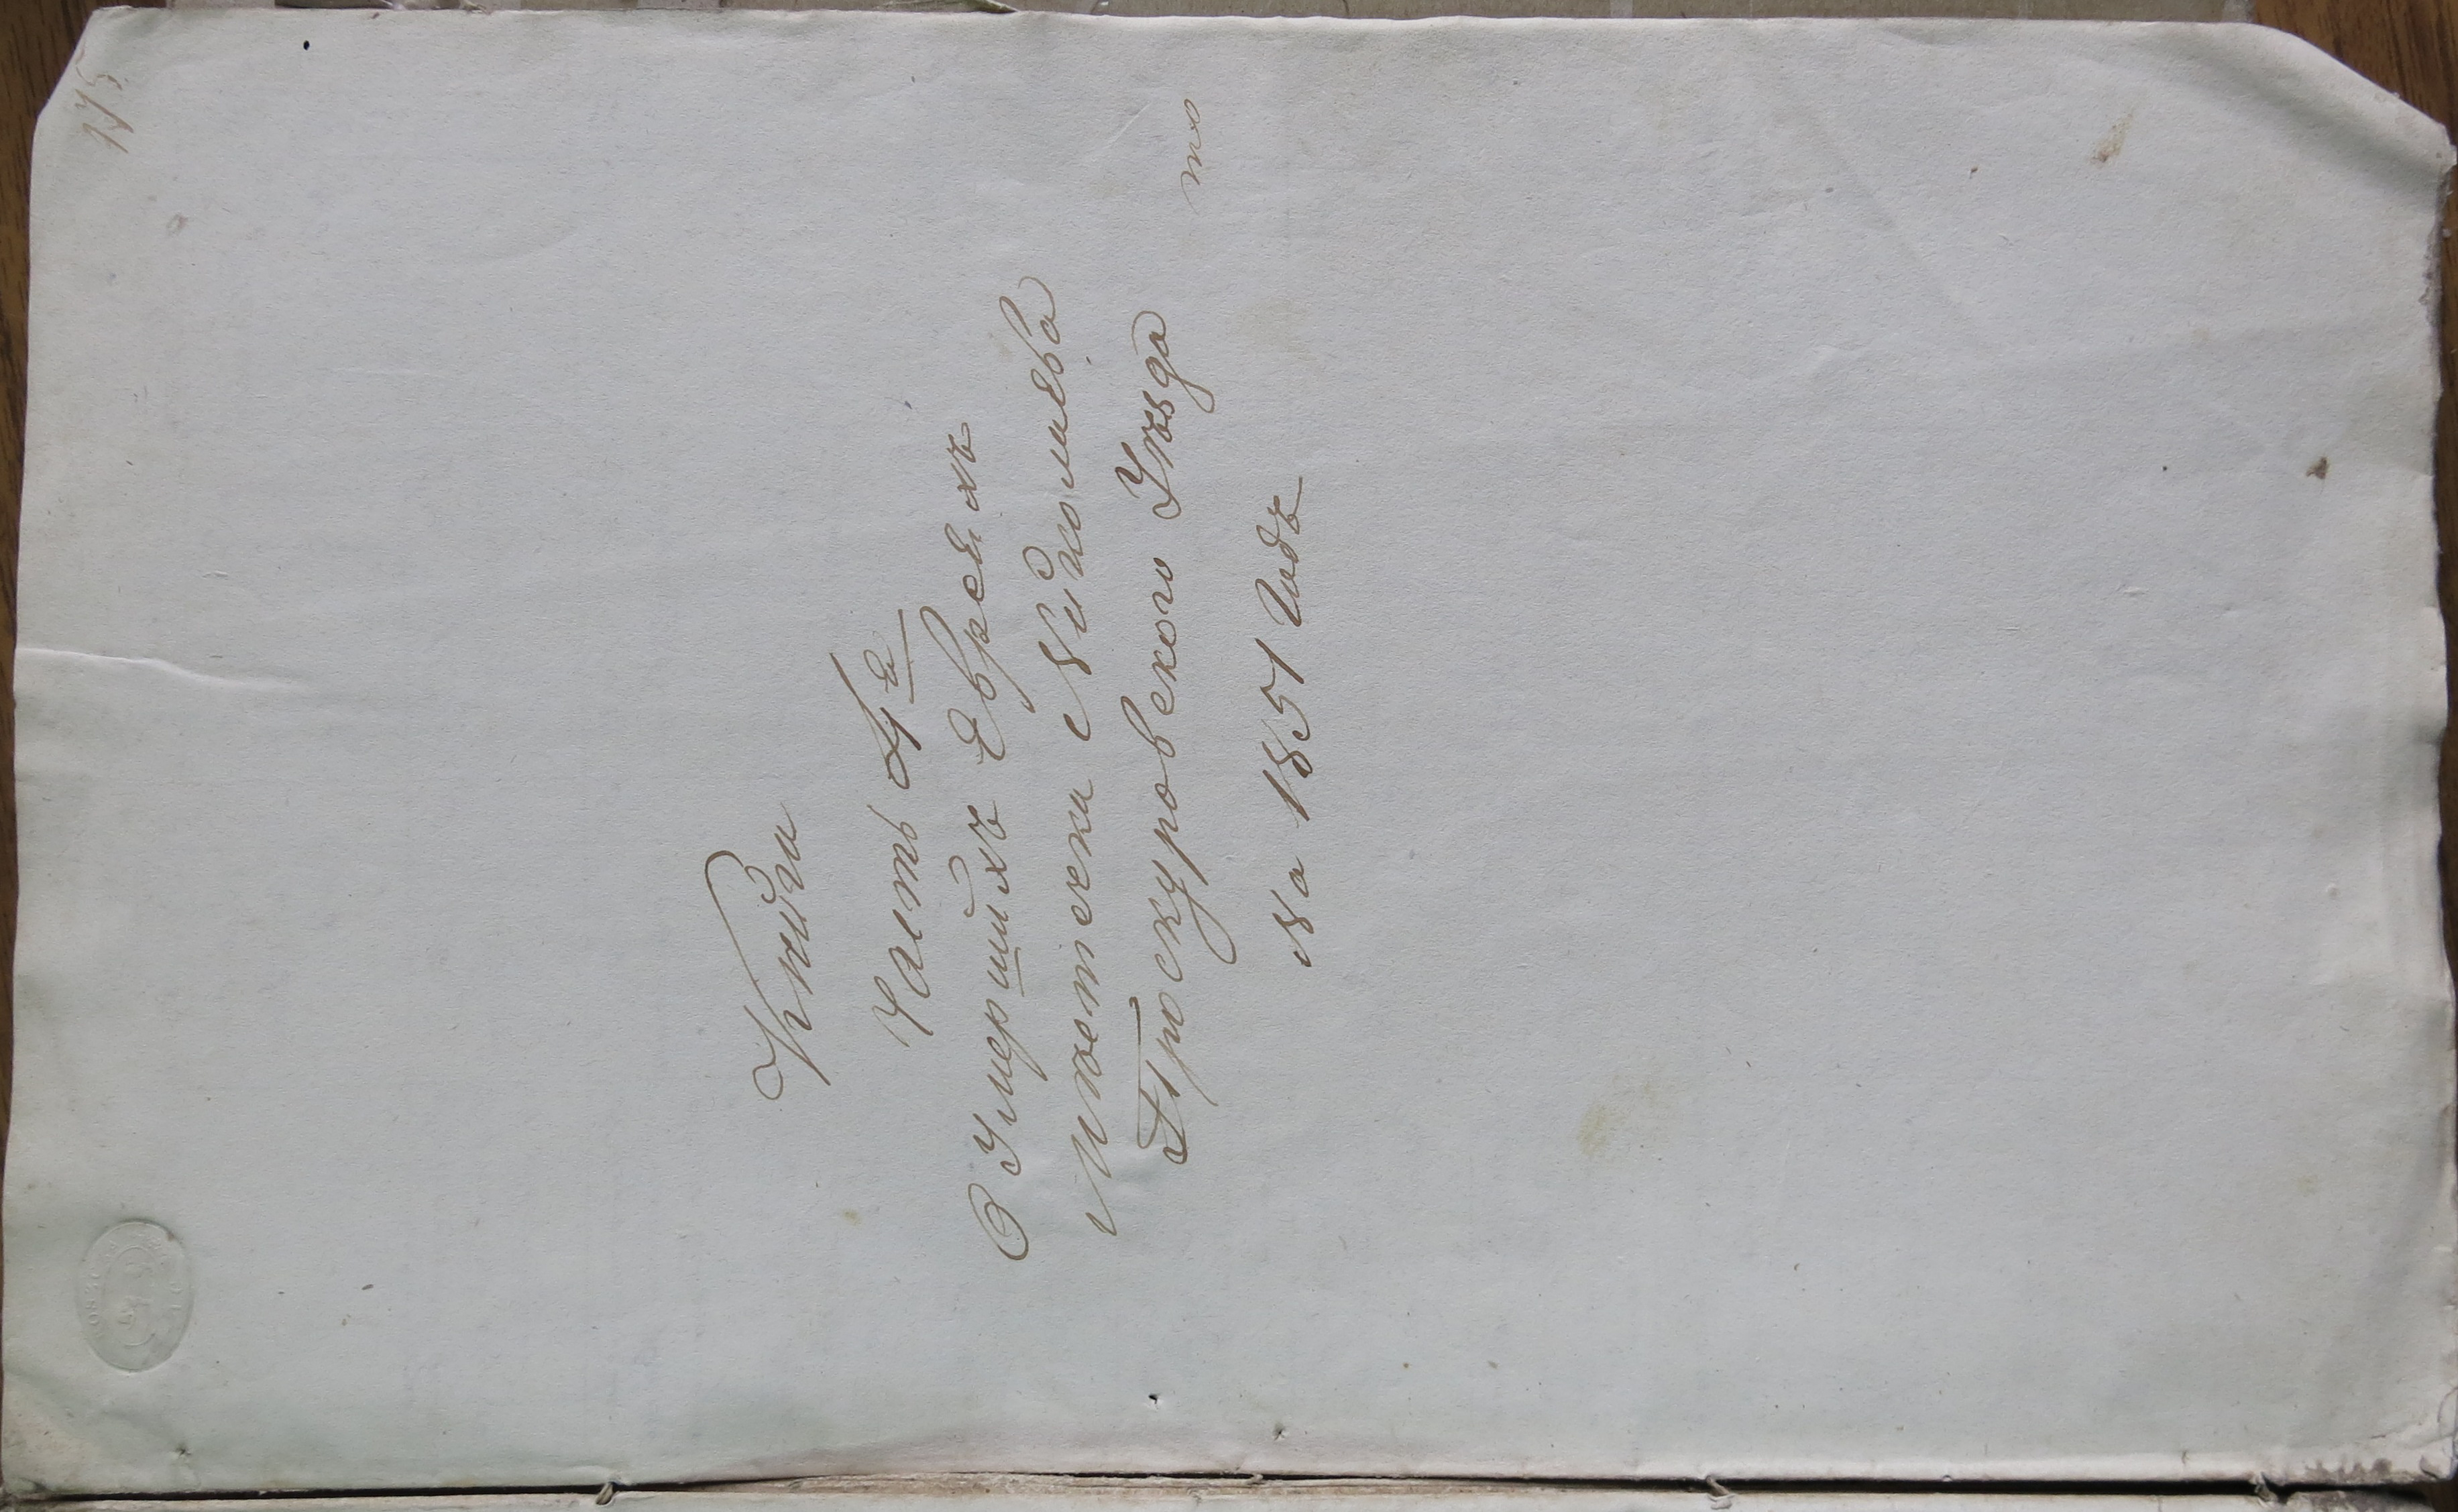 175.
Книга
Часть 4я
О Умершихъ Евреяхъ
Мѣстечка Николаева
Проскуровского Уѣзда
На 1851 Годъ